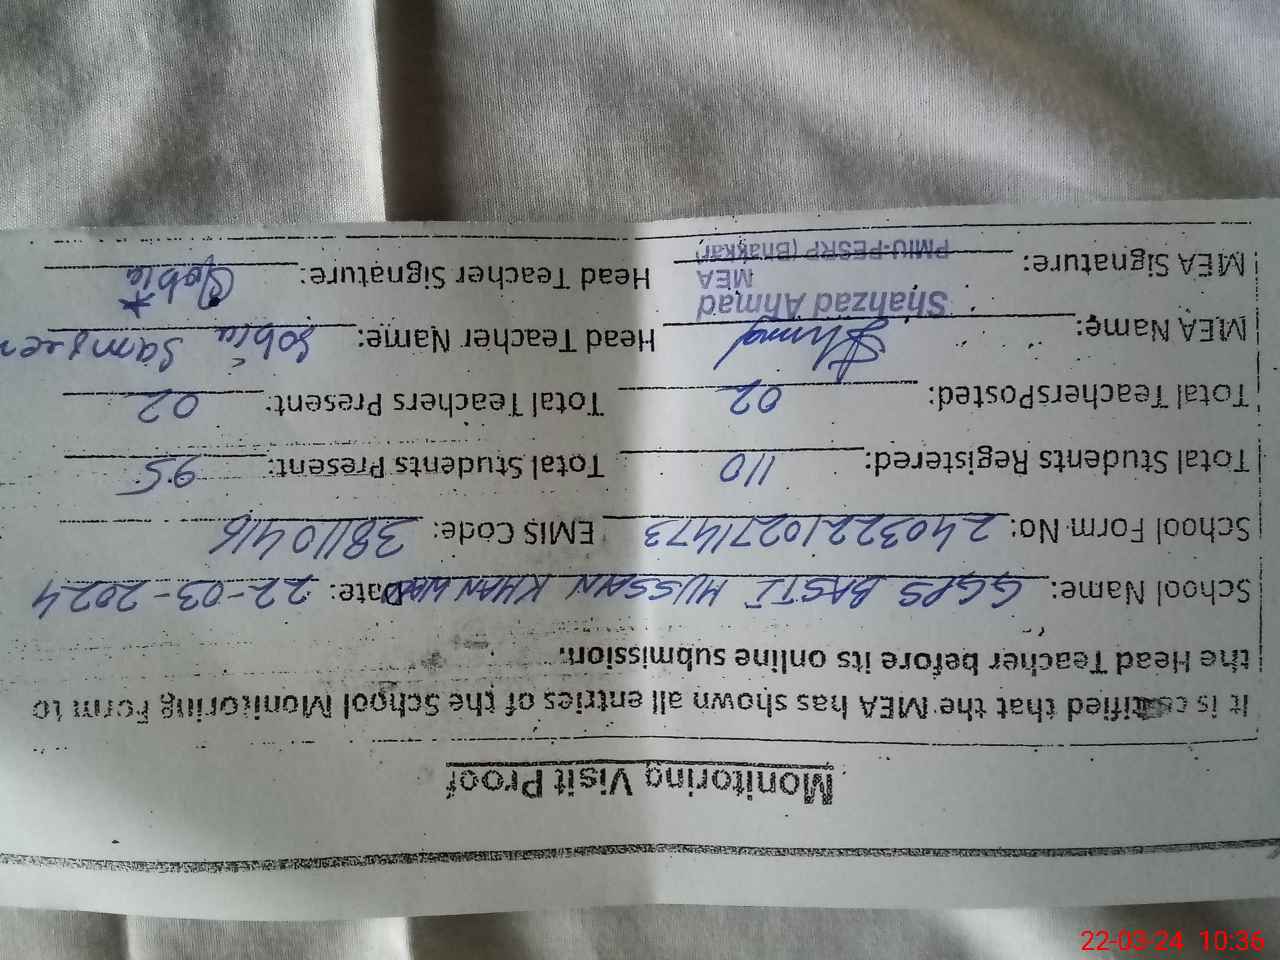 Monitoring Visit Proof
It is certified that the MEA has shown all entries of the School Monitoring Form to
the Head Teacher before its online submission.
School Name: GGPS BASTI HUSSAIN KHAN Date: 22-03-2024
School Form No: 24032210271473 EMIS Code: 38110416
Total Students Registered: 110 Total Students Present: 95
Total TeachersPosted: 02 Total Teachers Present: 02
MEA Name: Head Teacher Name: Sobia
Shahzad Ahmad
MEA
PMIU-PESRP (Bhakkar)
MEA Signature: Head Teacher Signature: Sobia
22-03-24 10:36